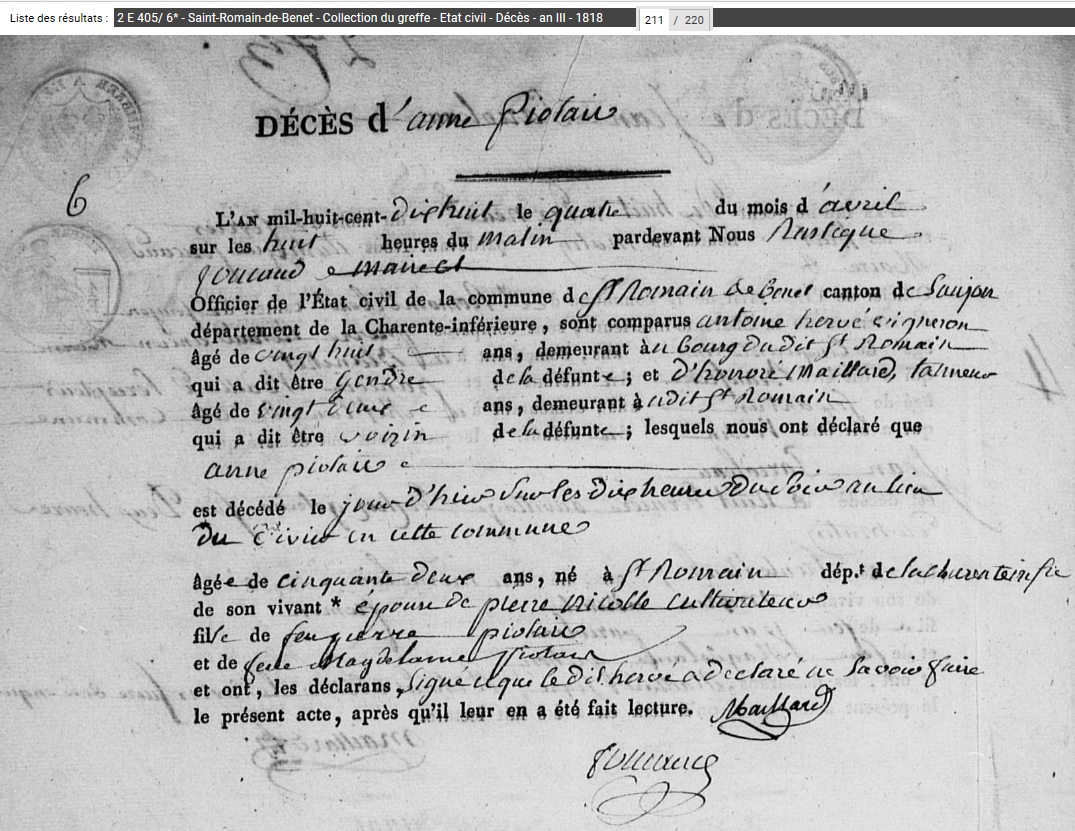 Liste des résultats : 2 E 405/ 6* - Saint-Romain-de-Benet - Collection du greffe - Etat civil - Décès - an III - 1818 211 / 220
DÉCÈS d'anne piolair
6
L'AN mil-huit-cent-dixhuit le quatre du mois d'avril
sur les huit heures du Matin pardevant Nous Rustique
maire et
Officier de l'État civil de la commune de St Romain de benet canton de Saujon
département de la Charente-inférieure, sont comparus antoine hervé vigneron
âgé de vingt huit ans, demeurant à u bourg du dit St Romain
qui a dit être Gendre de la défunte; et d'honoré Maillard, tanneur
âgé de vingt deux ans, demeurant à udit St Romain
qui a dit être voizin de la défunte; lesquels nous ont déclaré que
anne piolair
est décédé le jour d'hier sur les dix heures du soir au lieu
du en cette commune
âgée de cinquante deux ans, né à St Romain dép.t de la charente infre
de son vivant * épouse de pierre Nicolle cultivateur
fille de feu pierre piolair
et de feue Magdelaine piolair
et ont, les déclarans, signé que le dit hervé a declaré ne savoir faire
le présent acte, après qu'il leur en a été fait lecture. Maillard